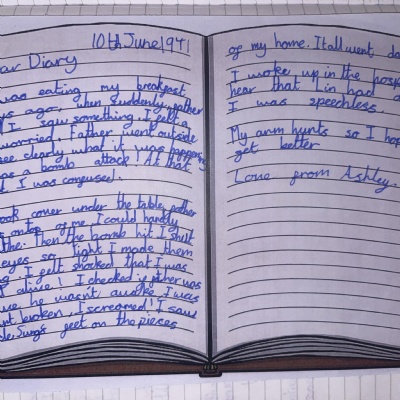 10th June 1941
ar Diary
was eating my breakfast
ys ago, when suddenly, father
d I saw something. I felt
worried. Father went outside
see clearly what it was happening
as a bomb attack! At that
d I was confused.
ook cover under the table, father
s on top of me. I could hardly
the. Then the bomb hit. I shut
eyes so tight I made them
g. I felt shocked that I was
alive! I checked if father was
ue he wasn't awake. I was
rt broken, I screamed! I saw
feet on the pieces
of my home. It all went da
I woke up in the hosp
hear that Lin had d
I was speechless.
My arm hurts so I hop
get better
Love from Ashley.